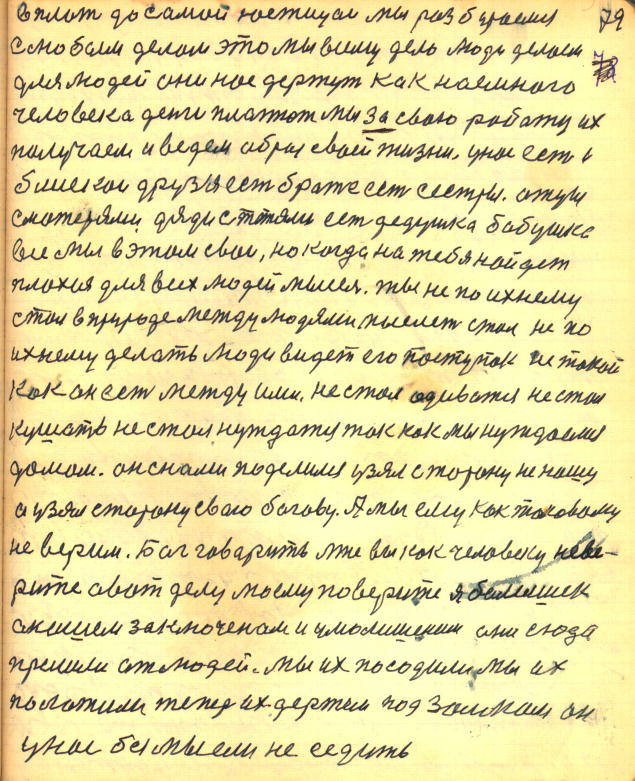 вплот до самой юстицаи мы разбираемся 79
слюбым делом это мы вижу дело люди делаем
для людей они нас держут как наемного
человека денги платют мы за свою работу их
получаем и ведем образ своей жизни. унас есть и
блиские друзья ест братя ест сестры. отцы
сматерями. дяди с тётями ест дедушка бабушка
все мы вэтом свои, но когда на тебя найдет
плохая для всех людей мысля. ты не по ихнему
стал вприроде между людями мыслет стал не по
ихнему делать люди видет его поступок не такой
как он ест между ими. нестал одиватся нестал
кушать нестал нуждатся так как мы нуждаемся
домом. он снами поделился узял сторону не нашу
а узял сторону сваю богову. А мы ему как таковому
не верим. Бог говарить уже вы как человеку неве-
рите авот делу моему поверите я болеишек
анашем заключенам и умолишенни они сюда
пришли от людей. мы их посодили мы их
положили тепер их держем под замком он
унас без мысли не седить